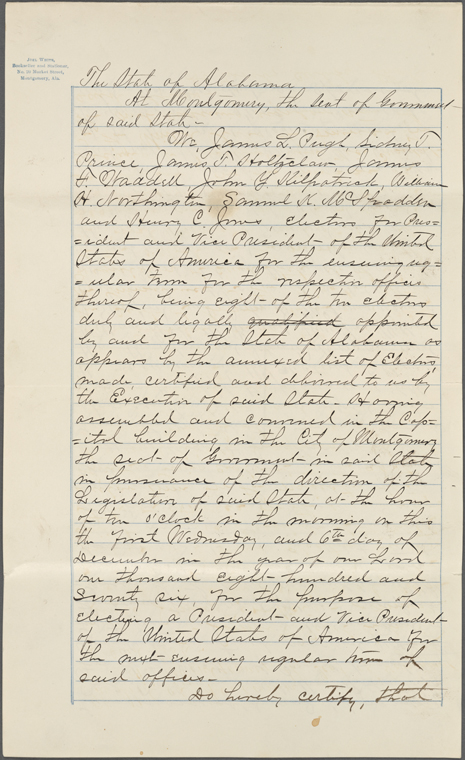 Montgomery, Ala.
The State of Alabama
At Montgomery, the seat of Government
of said State -
We, James L. Pugh, Sidney T.
Prince, James T. Holtzclaw, James
F. Waddell, John Y. Kilpatrick, William
H. Northington, Samuel K. McSpadden
and Henry C. Jones, electors for Pres=
=ident and Vice President of the United
States of America for the ensuing reg=
=ular term for the respective offices
thereof, being eight of the ten electors
duly and legally qualified appointed
by and for the State of Alabama as
appears by the annexed list of Electors,
made, certified and delivered to us by
the Executive of said State - Having
assembled and convened in the Cap=
=itol building in the City of Montgomery
the seat of Government in said State,
in pursuance of the direction of the
Legislature of said State, at the hour
of ten o'clock in the morning on this
the first Wednesday, and 6th day of
December in the year of our Lord
one thousand eight hundred and
Seventy six, for the purpose of
electing a President and Vice President
of the United States of America for
the next ensuing regular term of
said offices -
Do hereby certify, that